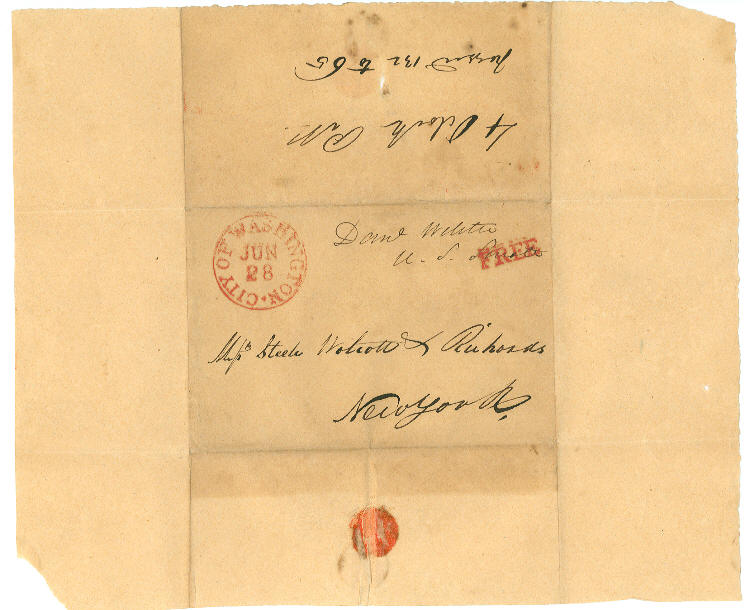 4 OClock P.M.
132 to 65
CITY OF WASHINGTON
JUN
28
Danl Webster
U. S. Senate
FREE
Messrs Steele Wolcott & Richards
New York